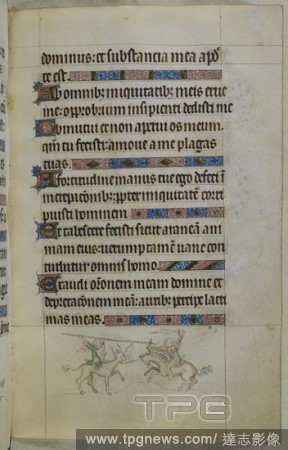 dominus: et substancia mea apo
te est.
Ab omnibus iniquitatibus meis erue
me: opprobrium insipienti dedisti me
Obmutui et non aperui os meum
qm tu fecisti: amoue a me plagas
tuas.
A fortitudine manus tue ego defeci i
increpationibus: propter iniquitatem corri
puisti hominem.
Et tabescere fecisti sicut araneam ani
mam eius: uerumptamen uane con
turbatur omnis homo.
Exaudi orationem meam domine et
deprecationem meam: auribus percipe lacri
mas meas.
TPG
www.tpgnews.com/達志影像